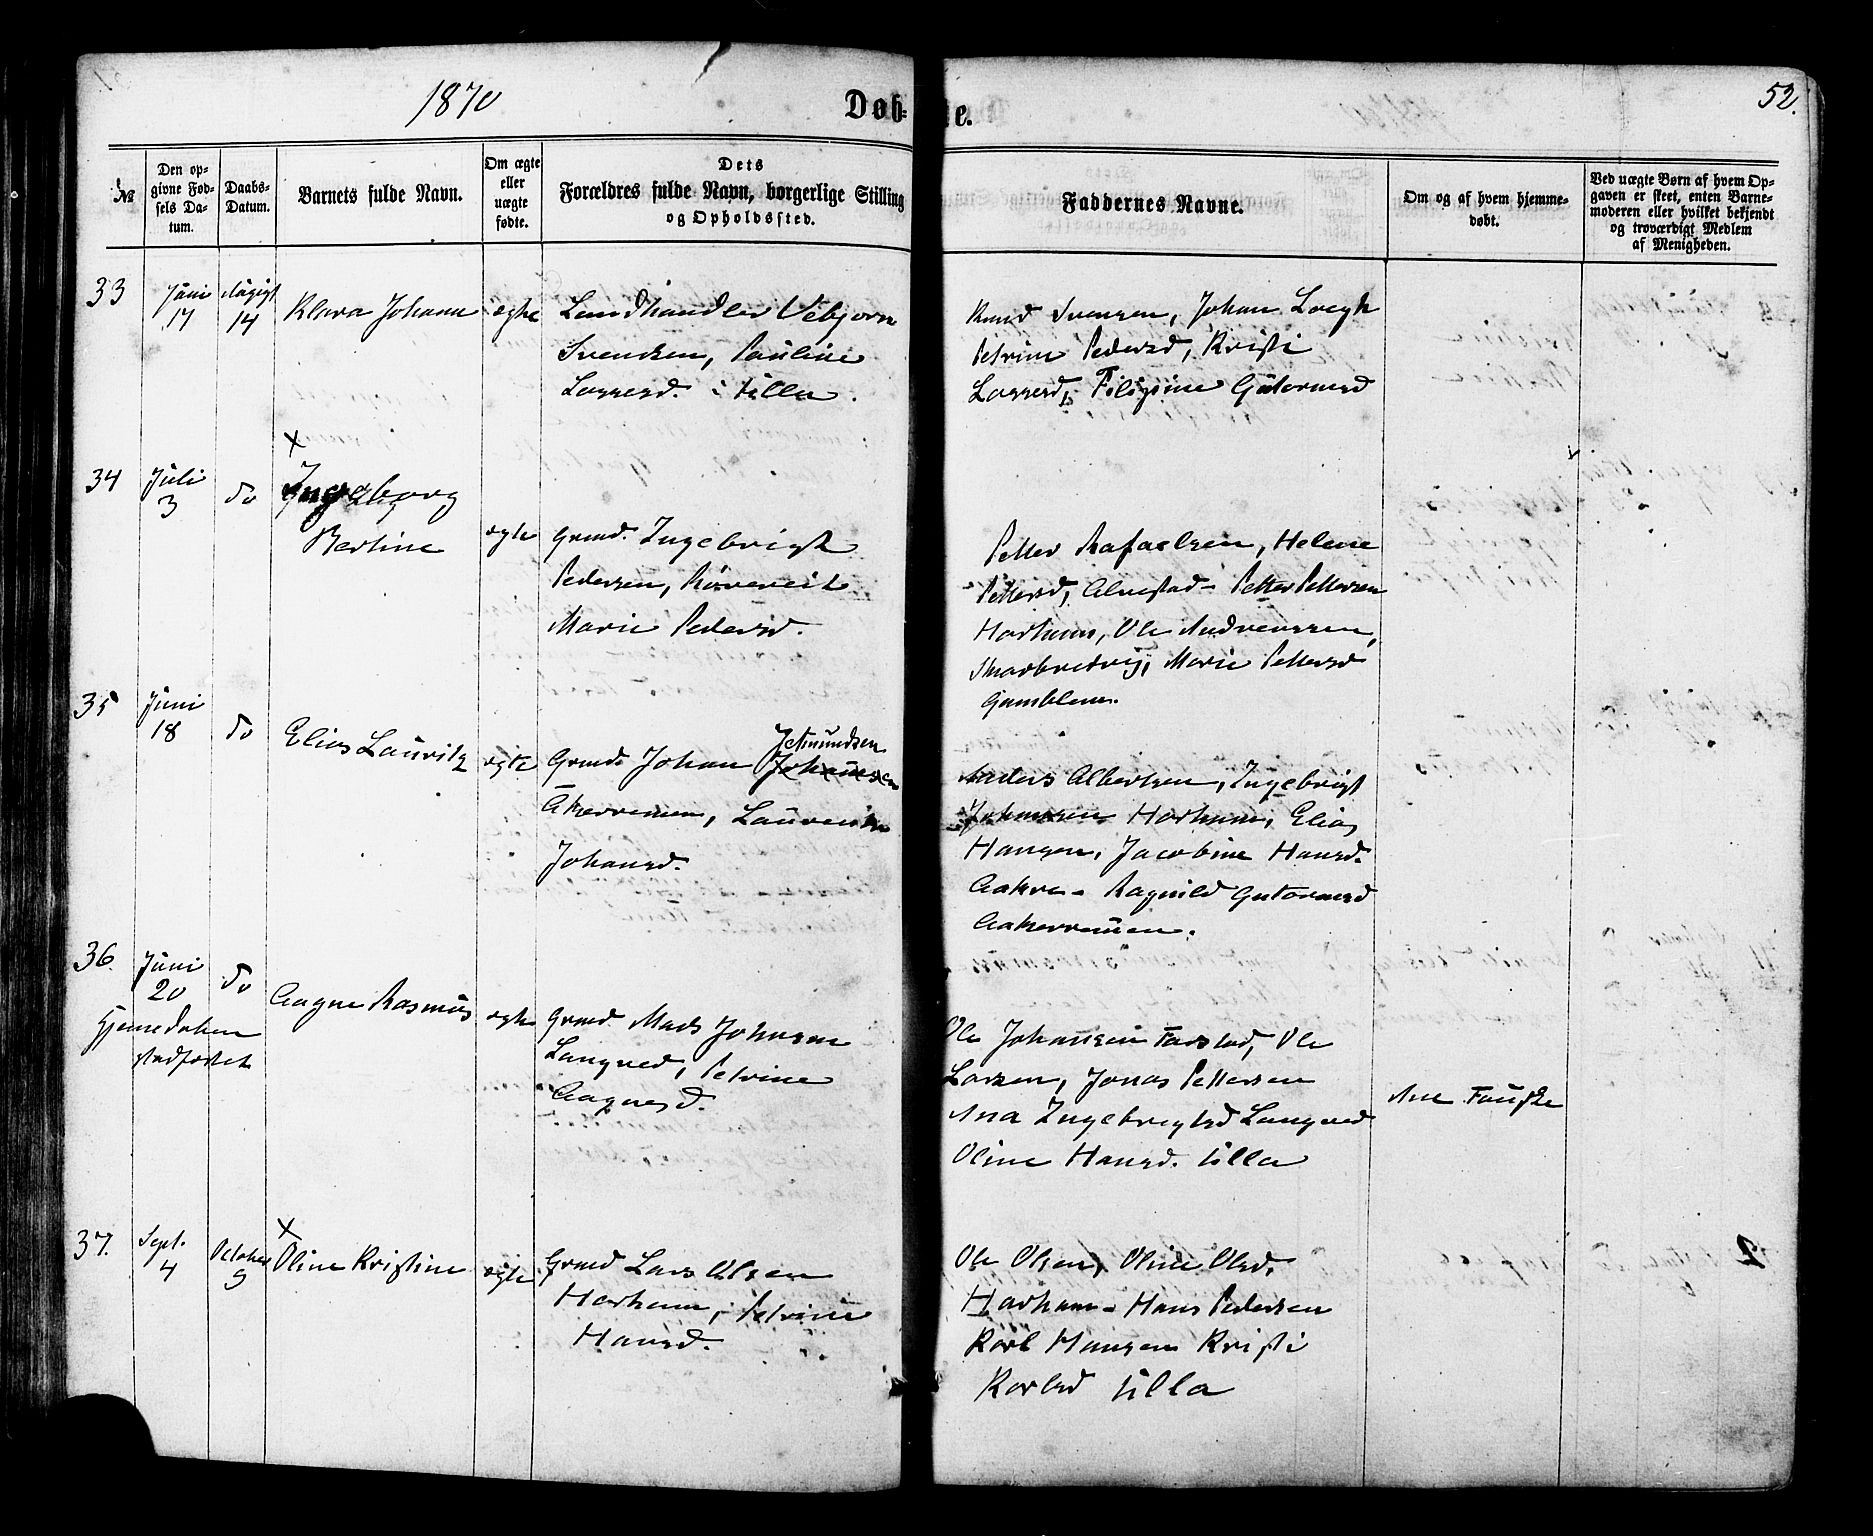 1870
Døb-
te.
52.
No
Den opgivne Fødsels Datum.
Daabs-Datum.
Barnets fulde Navn.
Om ægte eller uægte fødte.
Dets
Forældres fulde Navn, borgerlige Stilling
og Opholdssted.
Faddernes Navne.
Om og af hvem hjemmedøbt.
Ved uægte Børn af hvem Opgaven er skeet, enten Barnemoderen eller hvilket bekjendt og troværdigt Medlem af Menigheden.
33
Juni 17
August 14
Klara Johann
ægte
Landhandler Vebjørn
Svendsen, Pauline
Larsesd. Ulla.
Knud Svensen, Johan
Petrine Pedersd, Kristi
Larsesd, Gutormsd
34
Juli 3
do
×
Ingeborg
Bertine
ægte
Grmd. Ingebrigt
Pedersen, Røveveit
Marie Pedersd.
Petter Rafaelsen, Helene
Pettersd, Alvestad - Petter Pettersen
Harham, Ole Andreassen,
Skarbrevig, Marie Pettersd
Gamblem.
35
Juni 18
do
Elias Lauritz
ægte
Jetmundsen
Grmd. Johan Johansen
Akerremen,
Johansd.
Anders Albertsen, Ingebrigt
Johnsen Harham, Elias
Hansen, Jacobine Hansd.
Aakre - Ragnild Gutormsd
Aakerremen.
36.
Juni 20
do
Hjemedaaben
stadfæstet
Aagne Rasmus
ægte
Grmd. Mads Johnsen
Langved, Petrine
Aagnesd.
Ole Johansen Farstad, Ole
Larsen, Jonas Pettersen
Ana Ingebrigtsd Langved
Oline Hansd. Ulla
Ane Fauske
37.
Sept. 4
October 9
×
Oline Kristine
ægte
Grmd Lars Olsen
Harham, Petrine
Hansd.
Ole Olsen, Oline Olsd,
Harham - Hans Pedersen
Karl Hansen Kristi
Karlsd Ulla
2